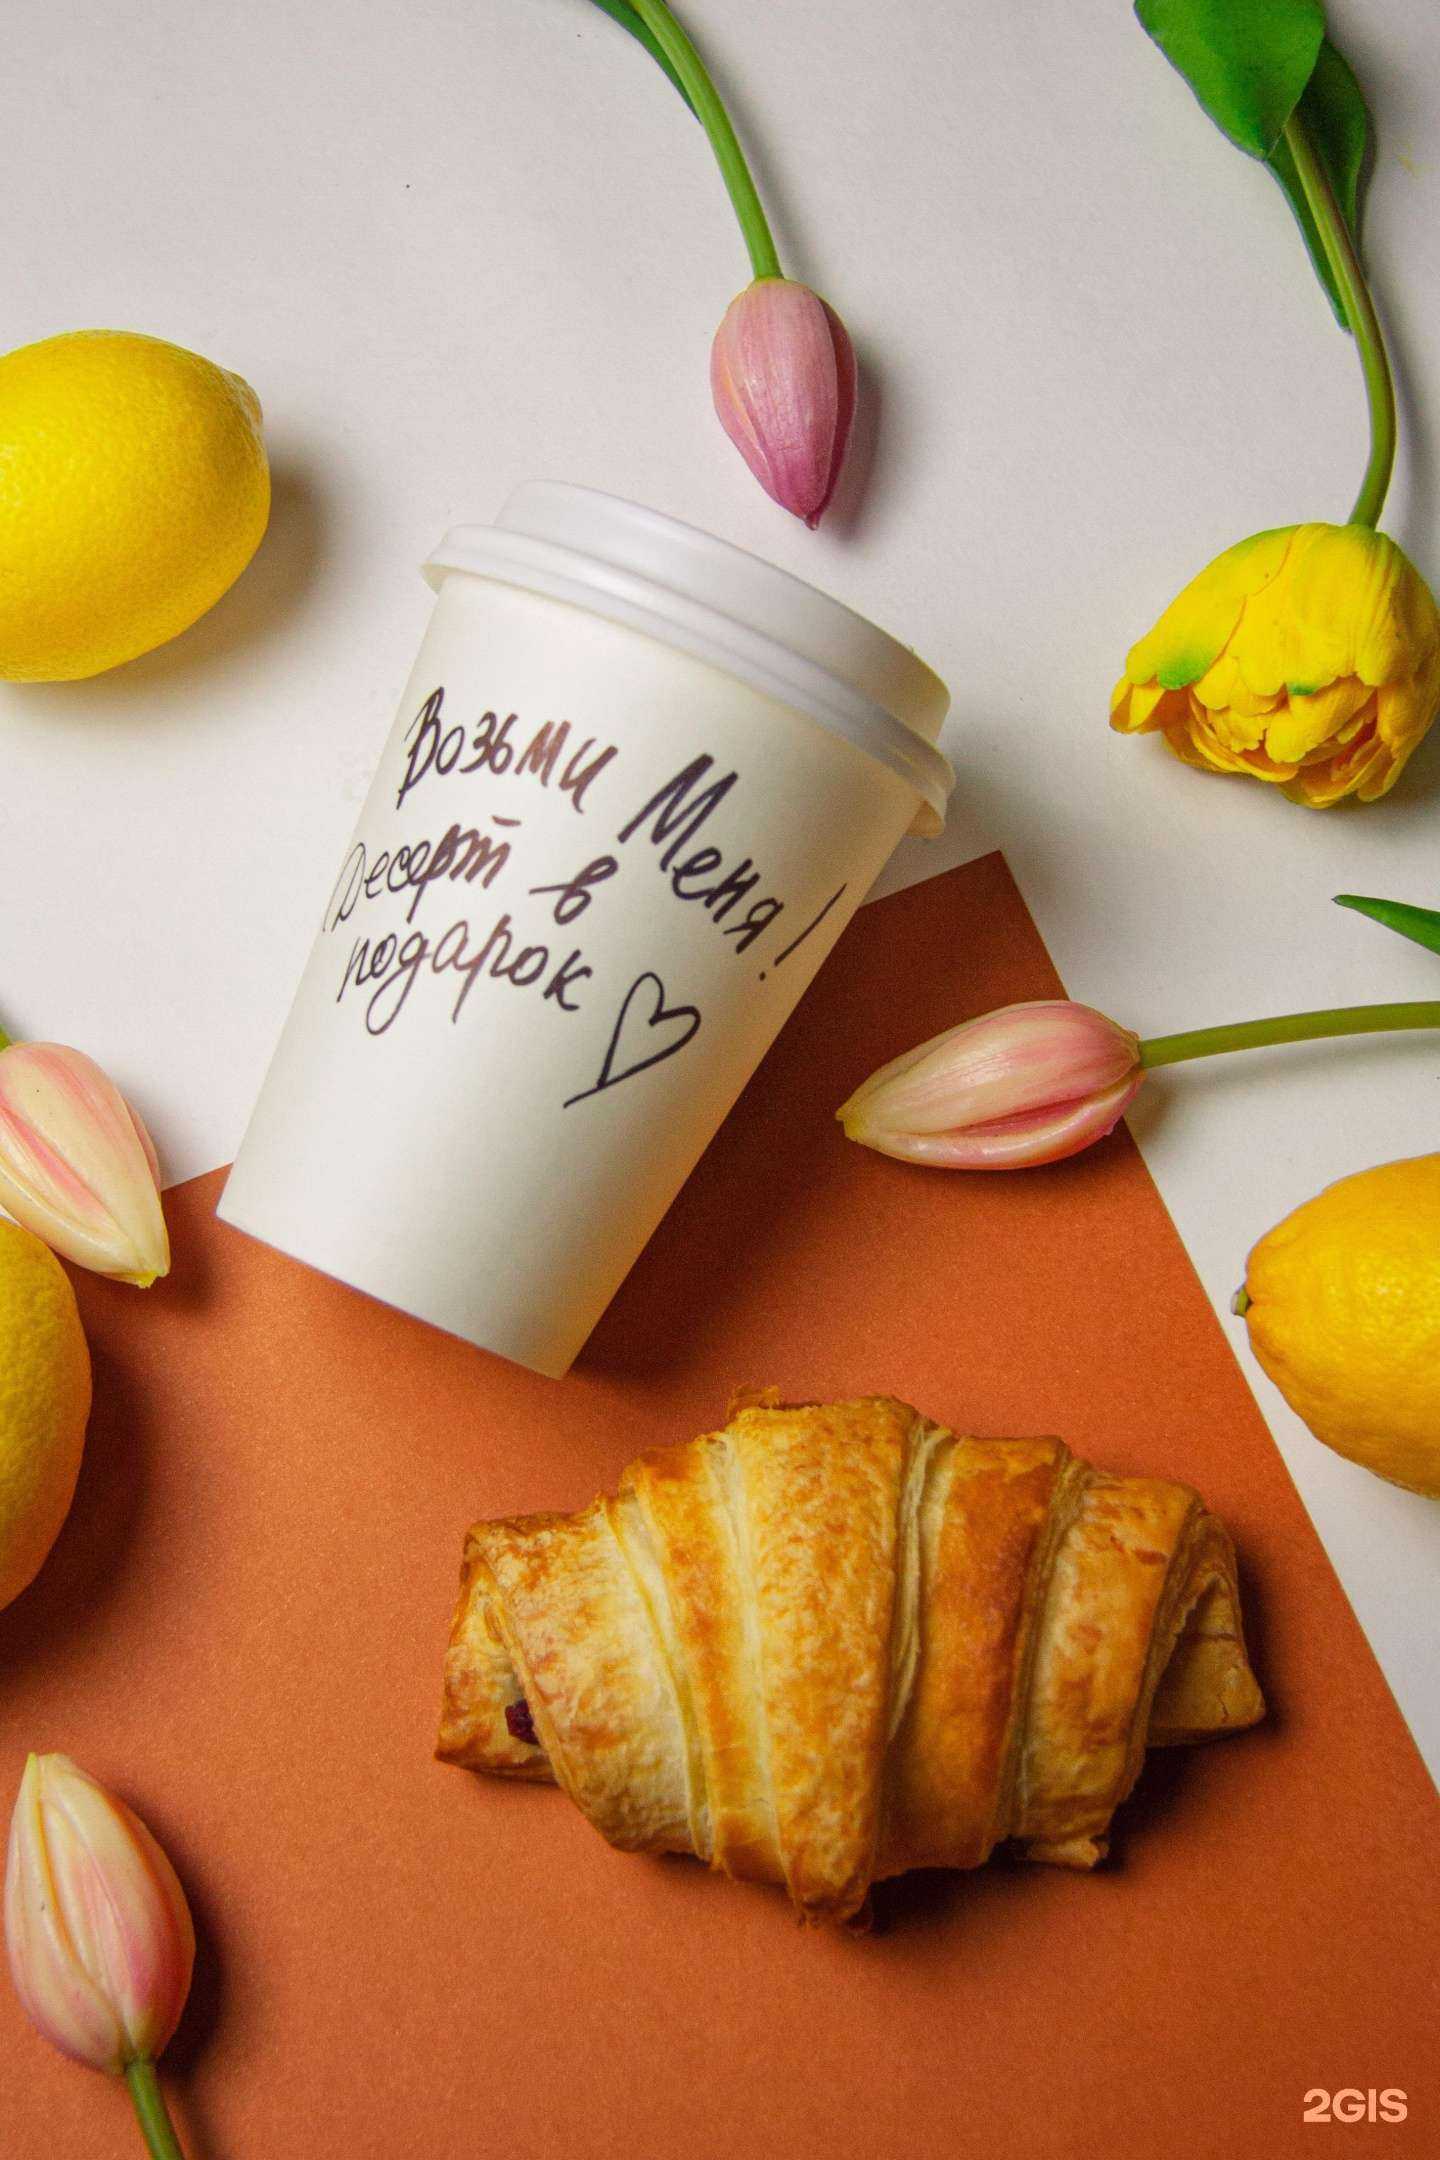 Возьми Меня!
Десерт в
подарок
2GIS